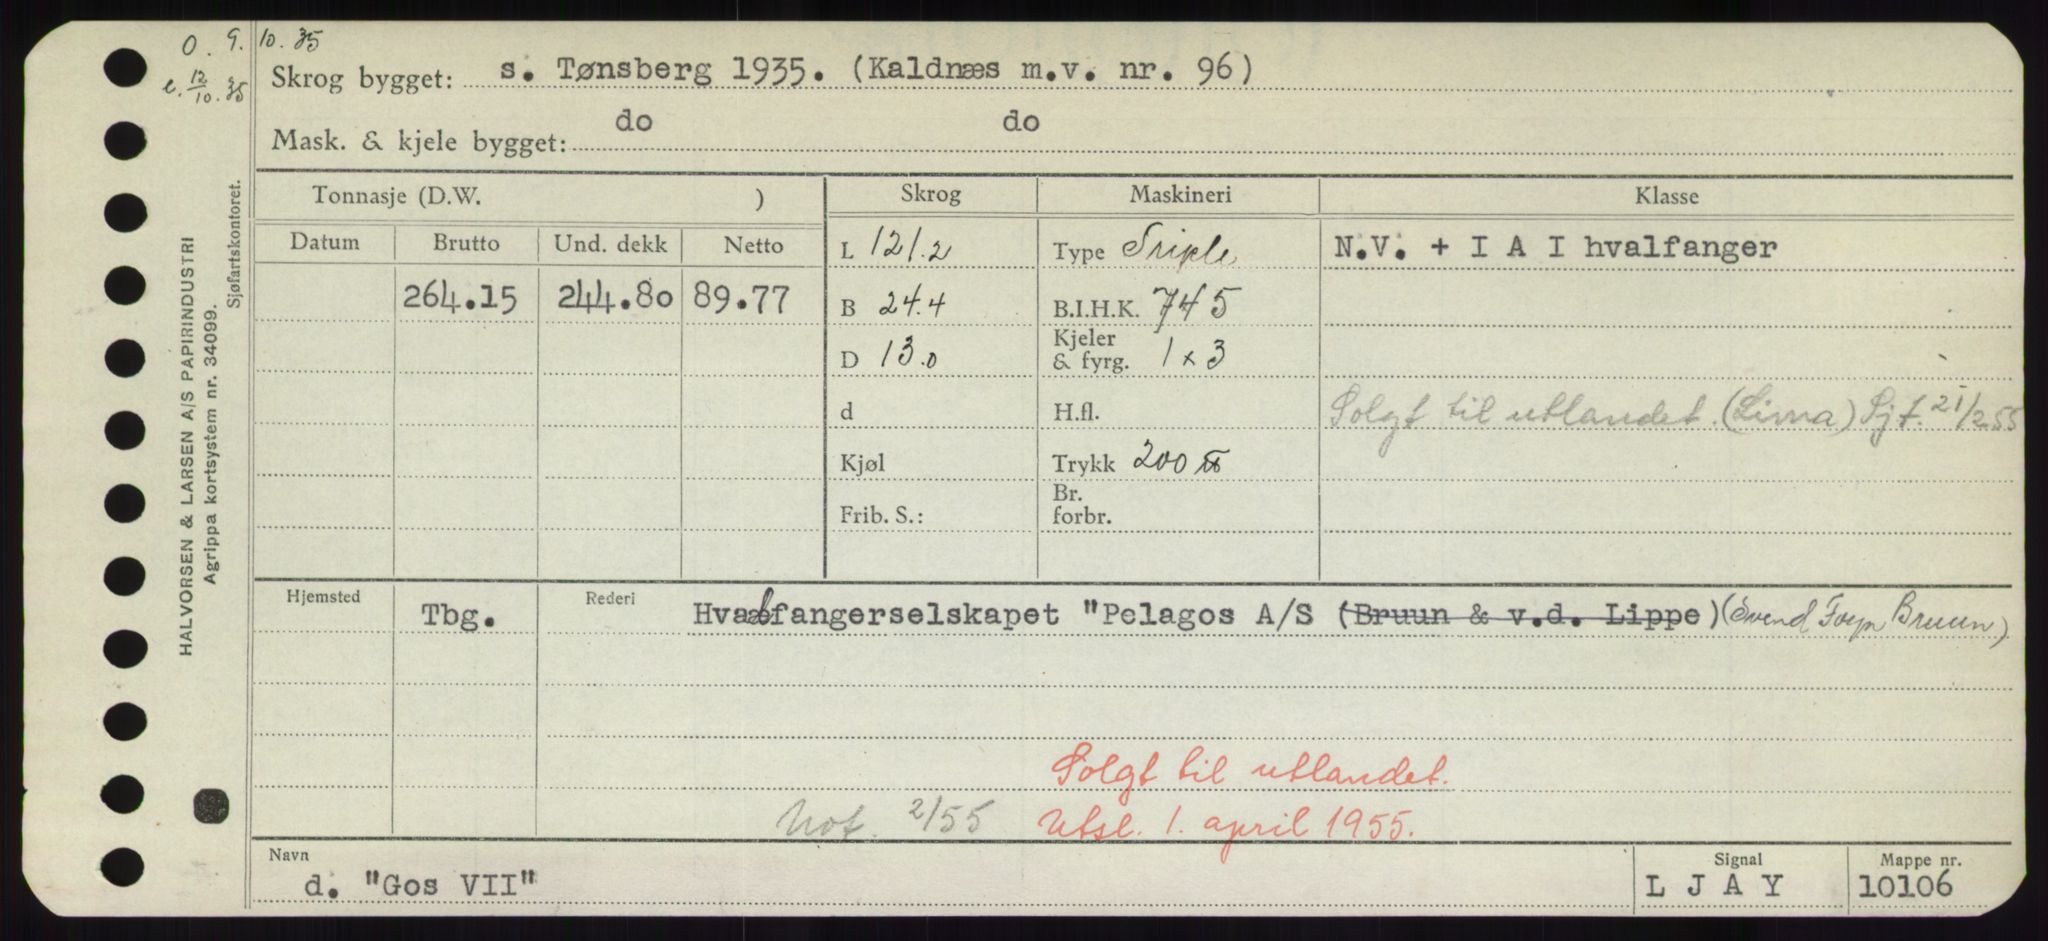 O. 9. 10. 35
e. 12/10. 35
Skrog bygget: s. Tønsberg 1935. (Kaldnæs m.v. nr. 96)
Mask. & kjele bygget: do do
HALVORSEN & LARSEN A/S PAPIRINDUSTRI
Agrippa kortsystem nr. 34099.
Sjøfartskontoret.
Tonnasje (D.W. )
Skrog
Maskineri
Klasse
Datum Brutto Und. dekk Netto
L 121.2
Type Triple
N.V. + I A I hvalfanger
264.15 244.80 89.77
B 24.4
B.I.H.K. 745
D 13.0
Kjeler
& fyrg. 1 x 3
d
H.fl.
Solgt til utlandet. (Lima) Sjf. 21/2 55
Kjøl
Trykk 200 ℔
Frib. S.:
Br.
forbr.
Hjemsted Tbg.
Rederi Hvalfangerselskapet "Pelagos A/S (Bruun & v.d. Lippe) (Svend Foyn Bruun)
Solgt til utlandet.
Not. 2/55 Utsl. 1. april 1955.
Navn
d. "Gos VII"
Signal
L J A Y
Mappe nr.
10106